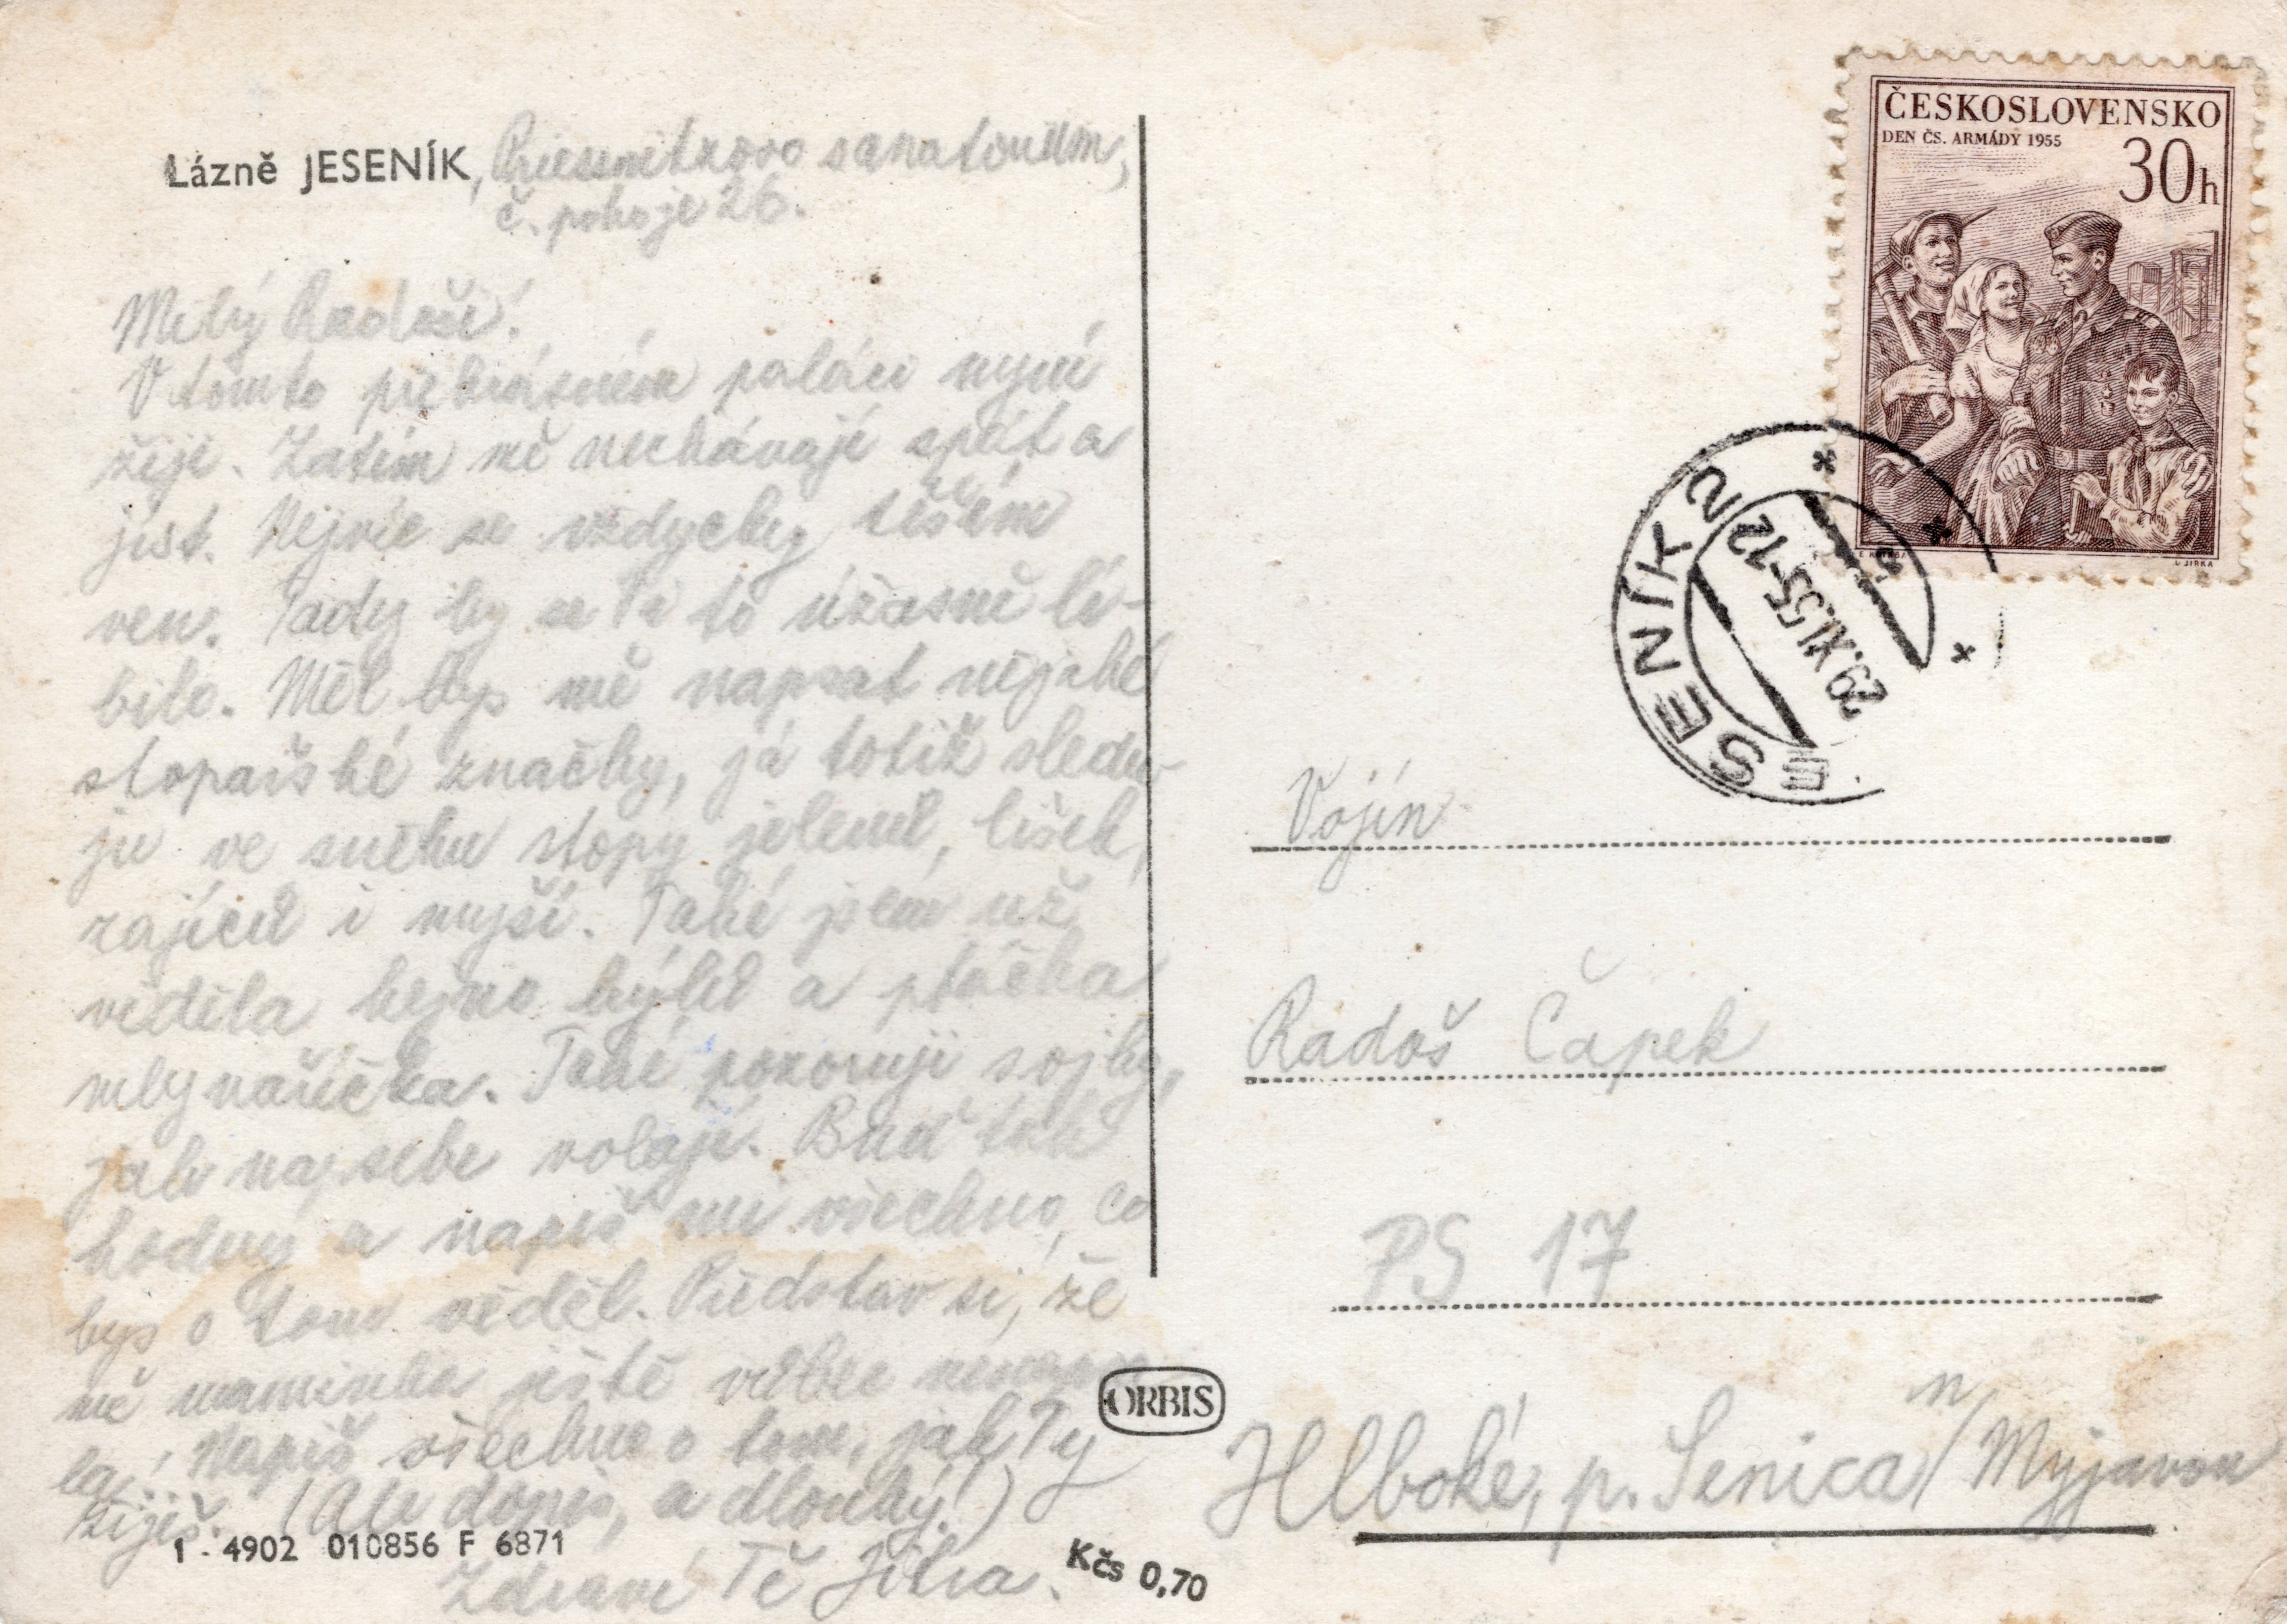 Lázně JESENÍK, Priessnitzovo sanatorium,
č. pokoje 26.
Milý Radoši!
V tomto překrásném paláci nyní
žiji. Zatím mě nechávají spát a
jíst. Nejvíc se vždycky těším
ven. Tady by se Ti to úžasně lí-
bilo. Měl bys mě napsat nějaké
stopařské značky, já totiž sledu-
ju ve sněhu stopy jelenů, lišek,
zajíců i myší. Také jsem už
viděla hejno hýlů a ptáčka
mlynaříčka. Také pozoruji sojky,
jak na sebe volají. Buď tak
hodný a napiš mi všechno, co
bys o tom věděl. Představ si, že
mě maminka ještě vůbec nenapsa-
la!. Napiš všechno o tom, jak Ty
žiješ. (Ale dopis, a dlouhý!)
Zdraví Tě Jitka.
1 - 4902 010856 F 6871
Kčs 0,70
ORBIS
ČESKOSLOVENSKO
DEN ČS. ARMÁDY 1955
30h
JIRKA
ESENÍK 2
29.XI.55-12
Vojín
Radoš Čapek
PS 17
Hlboké, p. Senica n/Myjavou